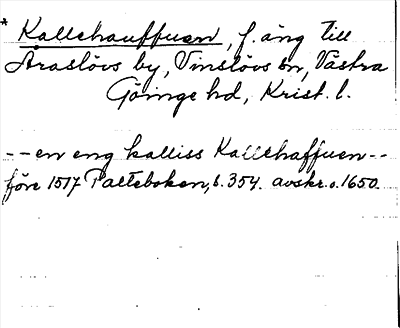 * Kallehauffuen, f. äng till
Araslövs by, Vinslövs sn, Västra
Göinge hd, Krist. l.
-- en eng kalliss Kallehaffuen --
före 1517 Palteboken, s. 354. avskr. o. 1650.